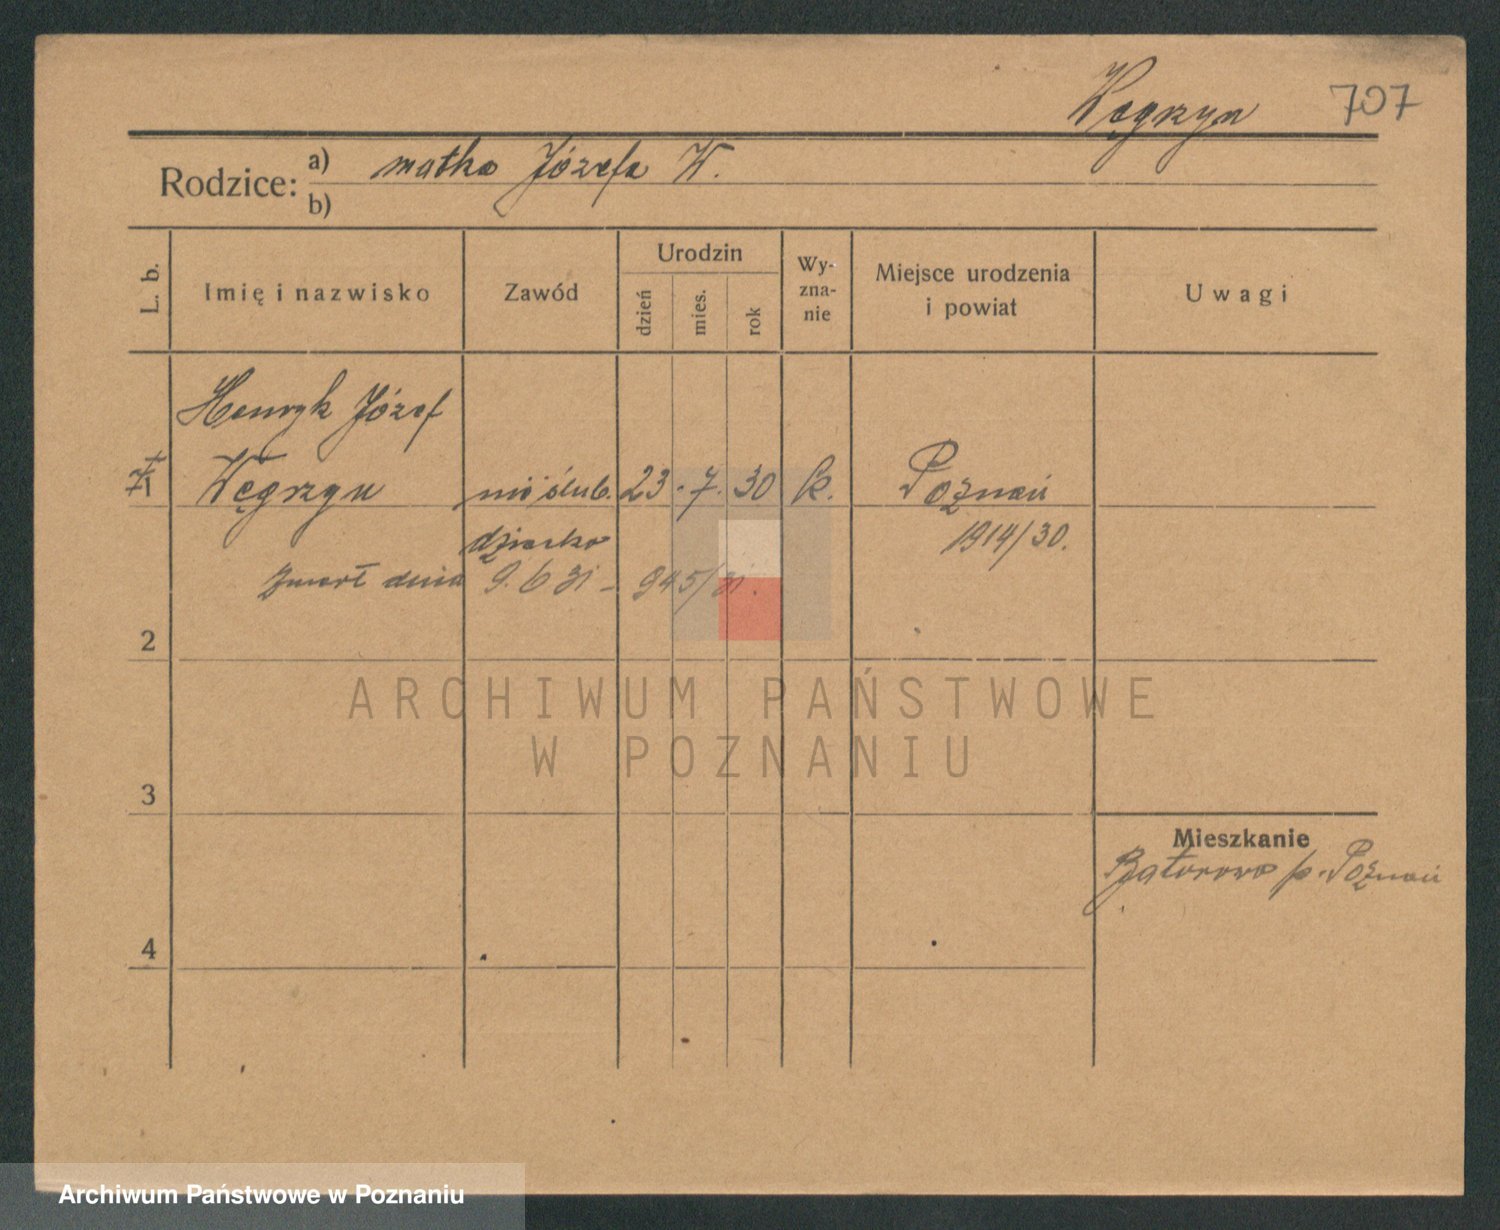 Węgrzyn 707
Rodzice: a) matka Józefa W.
b)
L. b. Imię i nazwisko Zawód Urodzin dzień mies. rok Wy-zna-nie Miejsce urodzenia i powiat Uwagi
Henryk Józef
1 Węgrzyn nieślub. 23. 7. 30 k. Poznań
dziecko 1914/30.
zmarł dnia 9.6 31 - 945/31.
2
ARCHIWUM PAŃSTWOWE
W POZNANIU
3
Mieszkanie
Batorowo p. Poznań
4
Archiwum Państwowe w Poznaniu